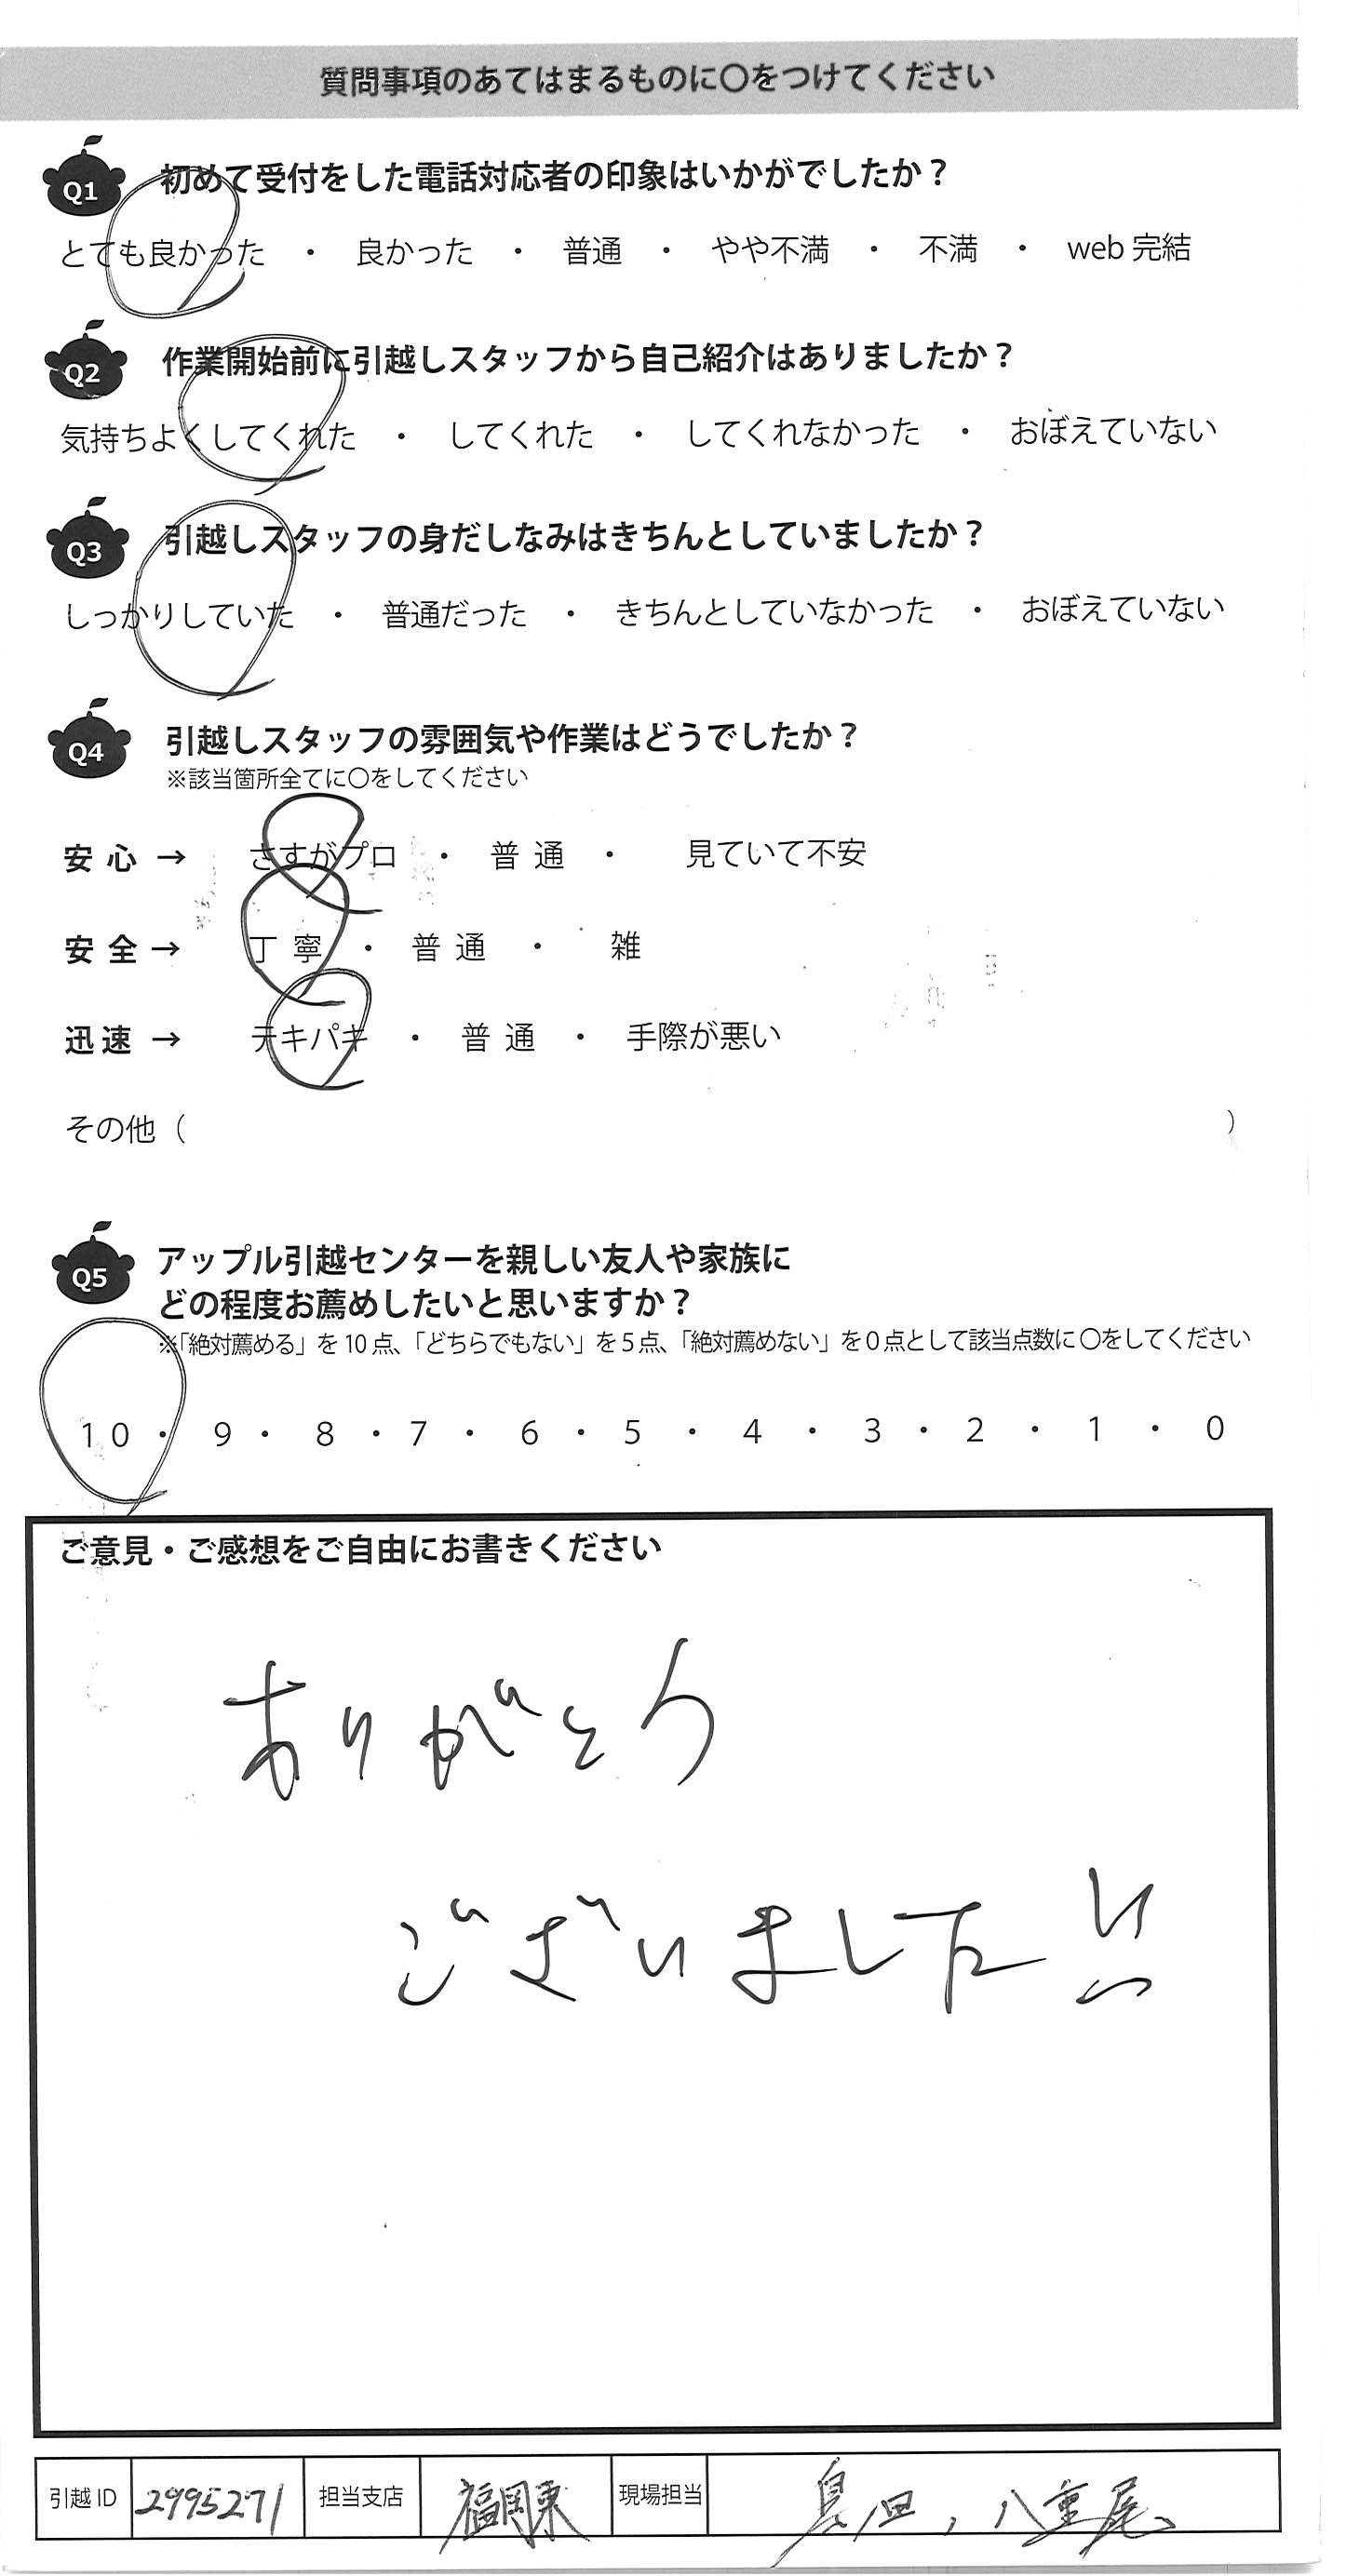 質問事項のあてはまるものに〇をつけてください
Q1 初めて受付をした電話対応者の印象はいかがでしたか？
とても良かった ・ 良かった ・ 普通 ・ やや不満 ・ 不満 ・ web完結
Q2 作業開始前に引越しスタッフから自己紹介はありましたか？
気持ちよくしてくれた ・ してくれた ・ してくれなかった ・ おぼえていない
Q3 引越しスタッフの身だしなみはきちんとしていましたか？
しっかりしていた ・ 普通だった ・ きちんとしていなかった ・ おぼえていない
Q4 引越しスタッフの雰囲気や作業はどうでしたか？
※該当箇所全てに〇をしてください
安心 → さすがプロ ・ 普通 ・ 見ていて不安
安全 → 丁寧 ・ 普通 ・ 雑
迅速 → テキパキ ・ 普通 ・ 手際が悪い
その他（ ）
Q5 アップル引越センターを親しい友人や家族に
どの程度お薦めしたいと思いますか？
※「絶対薦める」を10点、「どちらでもない」を5点、「絶対薦めない」を0点として該当点数に〇をしてください
10 ・ 9 ・ 8 ・ 7 ・ 6 ・ 5 ・ 4 ・ 3 ・ 2 ・ 1 ・ 0
ご意見・ご感想をご自由にお書きください
ありがとう
ございました!!
引越ID 2995271 担当支店 福岡東 現場担当 島田, 八重尾